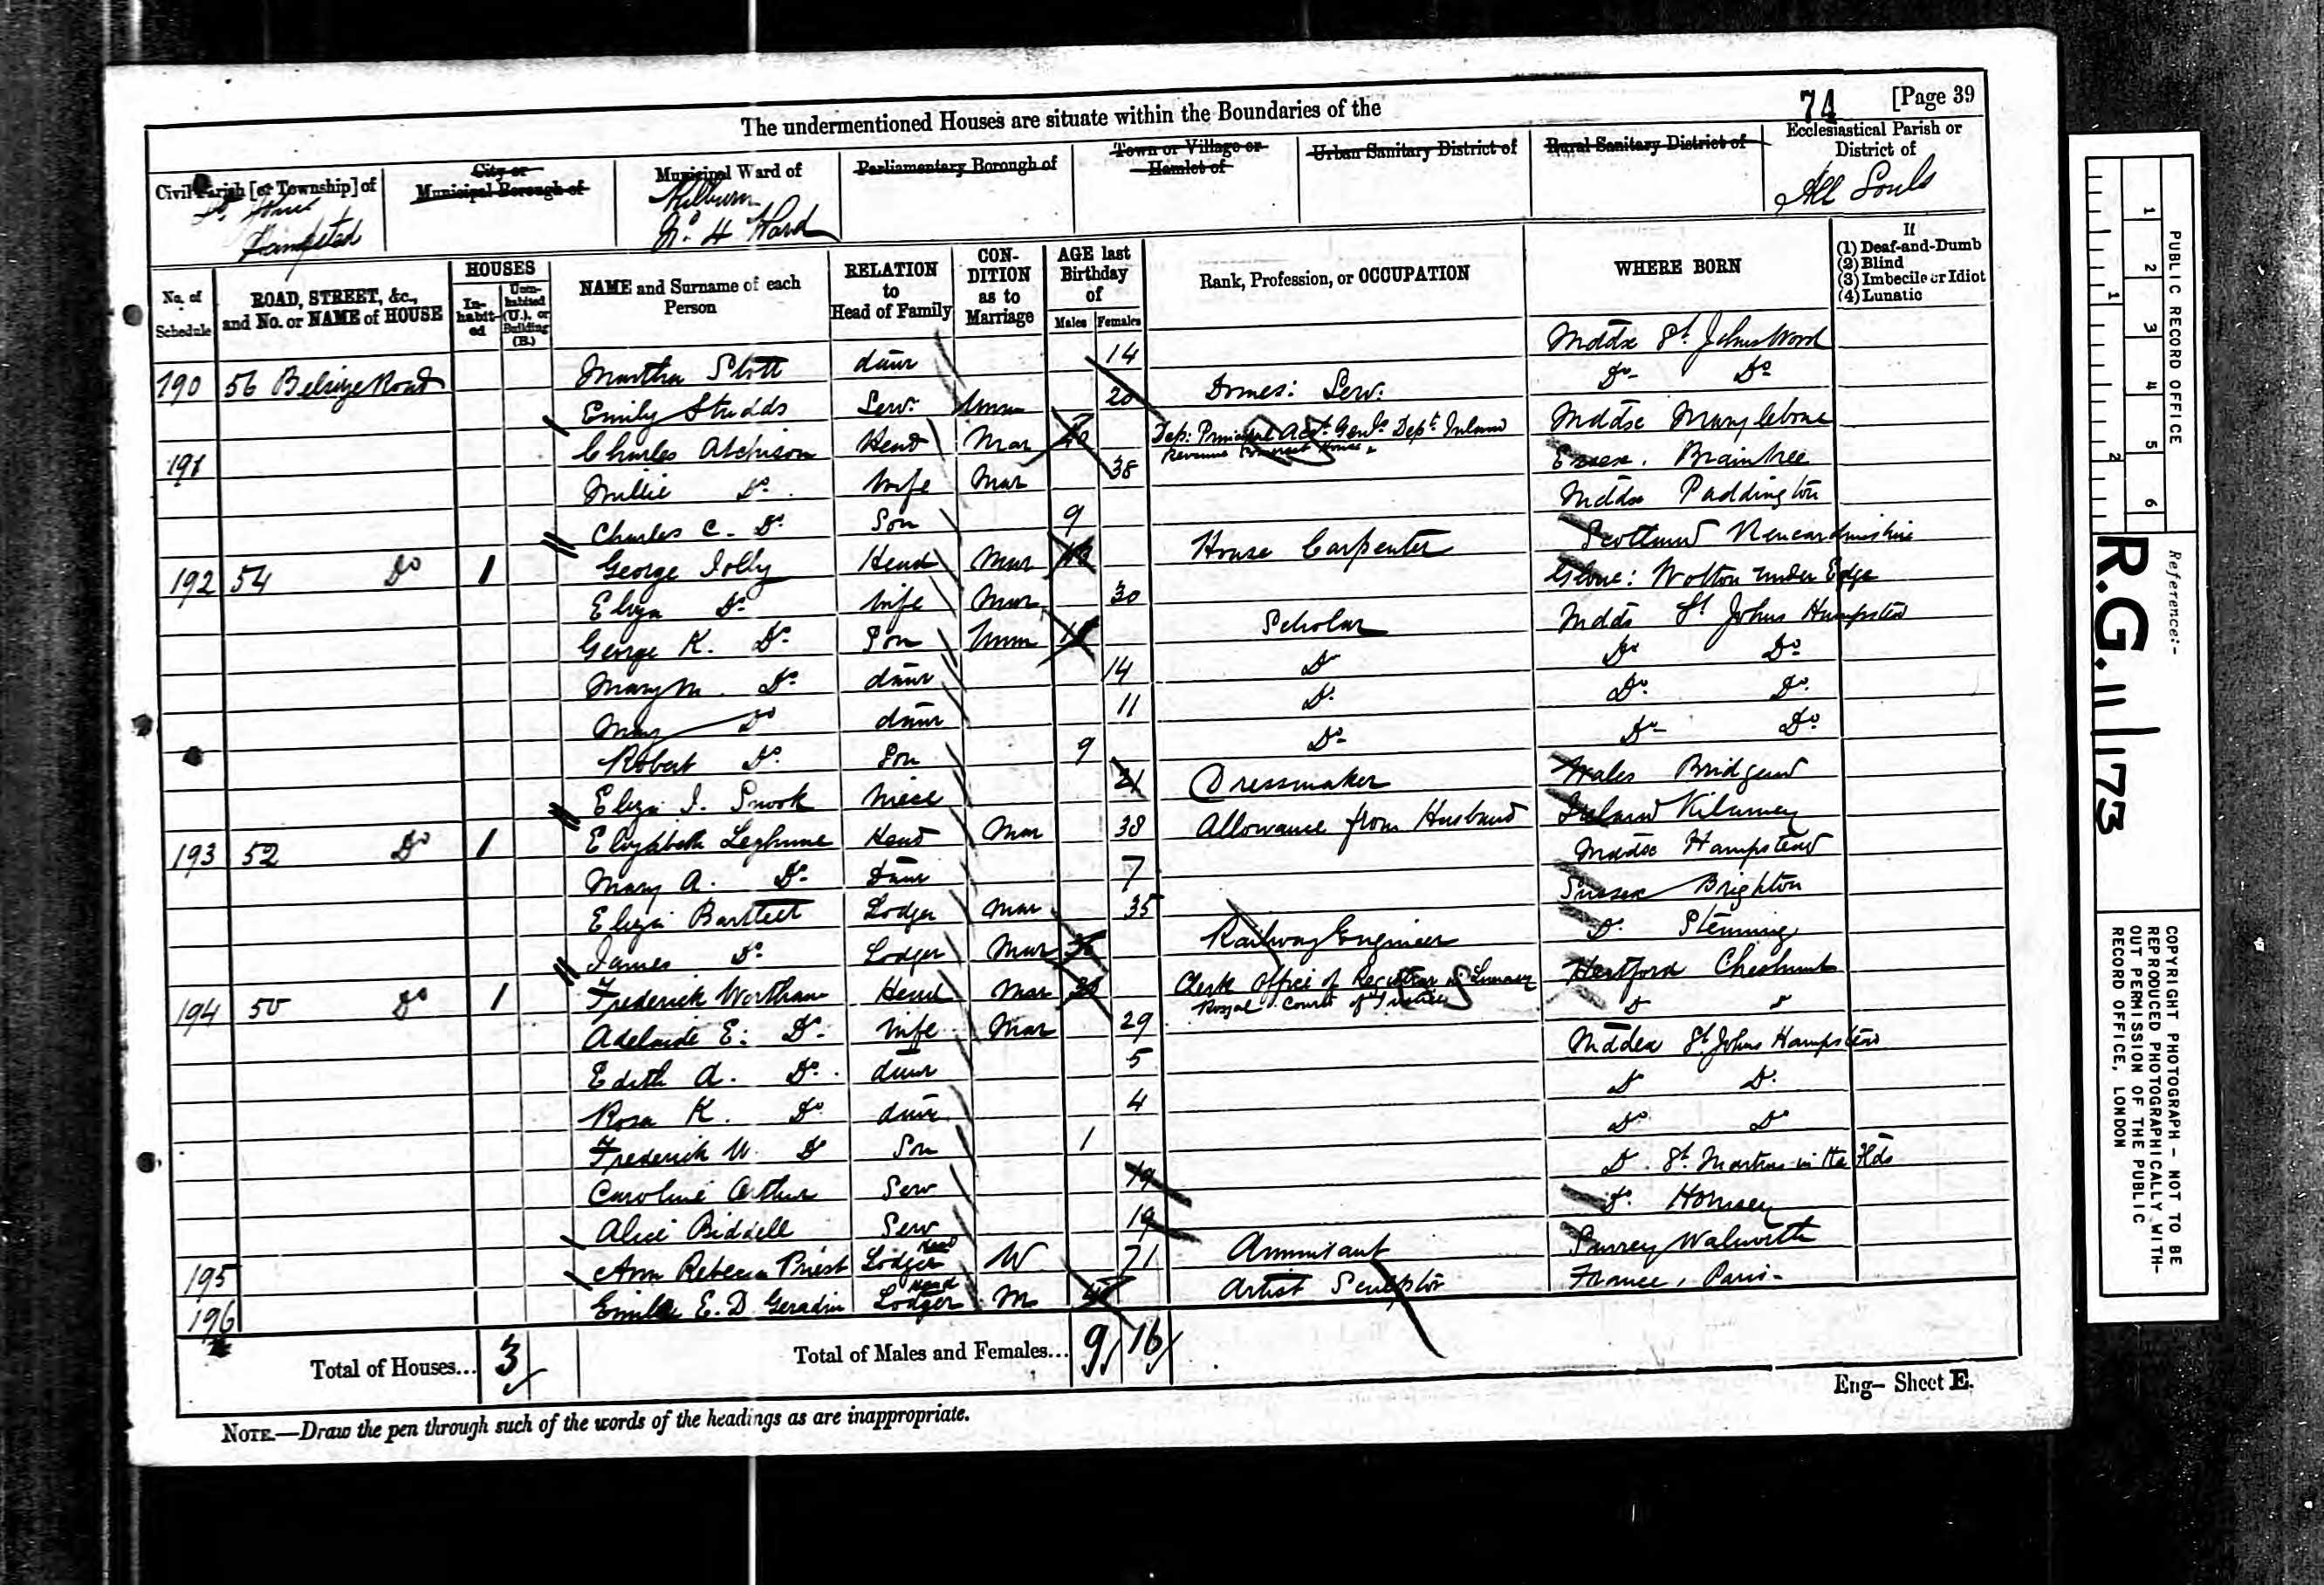 74 [Page 39
The undermentioned Houses are situate within the Boundaries of the
Civil Parish [or Township] of
St. Johns
Hampstead
City or
Municipal Borough of
Municipal Ward of
Kilburn
No. 4 Ward
Parliamentary Borough of
Town or Village or
Hamlet of
Urban Sanitary District of
Rural Sanitary District of
Ecclesiastical Parish or
District of
All Souls
No. of
Schedule
ROAD, STREET, &c.,
and No. or NAME of HOUSE
HOUSES
In-
habit-
ed
Unin-
habited
(U.), or
Building
(B.)
NAME and Surname of each
Person
RELATION
to
Head of Family
CON-
DITION
as to
Marriage
AGE last
Birthday
of
Males Females
Rank, Profession, or OCCUPATION
WHERE BORN
If
(1) Deaf-and-Dumb
(2) Blind
(3) Imbecile or Idiot
(4) Lunatic
190 56 Belsize Road Martha Stott daur 14 Mddx St. Johns Wood
Emily Studds Serv. Unm 20 Domes: Serv. Do- Do
191 Charles Atchison Head Mar Dep: Principal Acct. Genls. Dept. Inland Revenue Somerset House Mddse Marylebone
Millie Do. Wife Mar 38 Essex. Braintree
Charles C. Do. Son 9 Mddx Paddington
192 54 Do 1 George Jolly Head Mar House Carpenter Scotland Kincardineshire
Eliza Do Wife Mar 30 Glouc: Wotton under Edge
George K. Do. Son Unm Scholar Mddx St Johns Hampstead
Mary M. Do. daur 14 Do Do Do
May Do daur 11 Do. Do. Do.
Robert Do. Son 9 Do- Do- Do
Eliza J. Snook Niece 21 Dressmaker Wales Bridgend
193 52 Do 1 Elizabeth Leghune Head Mar 38 Allowance from Husband Ireland Kilarney
Mary A. Do- Daur 7 Mddse Hampstead
Eliza Bartlett Lodger Mar 35 Sussex Brighton
James Do. Lodger Mar Railway Engineer Do. Stenning
194 50 Do 1 Frederick Wortham Head Mar Clerk Office of Registrar in Lunacy Royal Courts of Justice Hertford Cheshunt
Adelaide E: Do. Wife Mar 29 Do Do
Edith A. Do. daur 5 Mddex St. Johns Hampstead
Rosa K. Do. daur 4 Do Do.
Frederick W. Do Son 1 Do Do
Caroline Arthur Serv 19 Do. St. Martins in the Flds
Alice Biddell Serv 19 Do. Hornsey
195 Ann Rebecca Priest Lodger Head W 71 Annuitant Surrey Walworth
196 Emile E. D. Geradin Lodger Head M Artist Sculptor France, Paris-
Total of Houses... 3
Total of Males and Females... 9 16
Eng- Sheet E.
NOTE.—Draw the pen through such of the words of the headings as are inappropriate.
1 2 3 4 5 6
1 2
PUBLIC RECORD OFFICE
Reference:-
R.G. 11/173
COPYRIGHT PHOTOGRAPH - NOT TO BE
REPRODUCED PHOTOGRAPHICALLY WITH-
OUT PERMISSION OF THE PUBLIC
RECORD OFFICE, LONDON